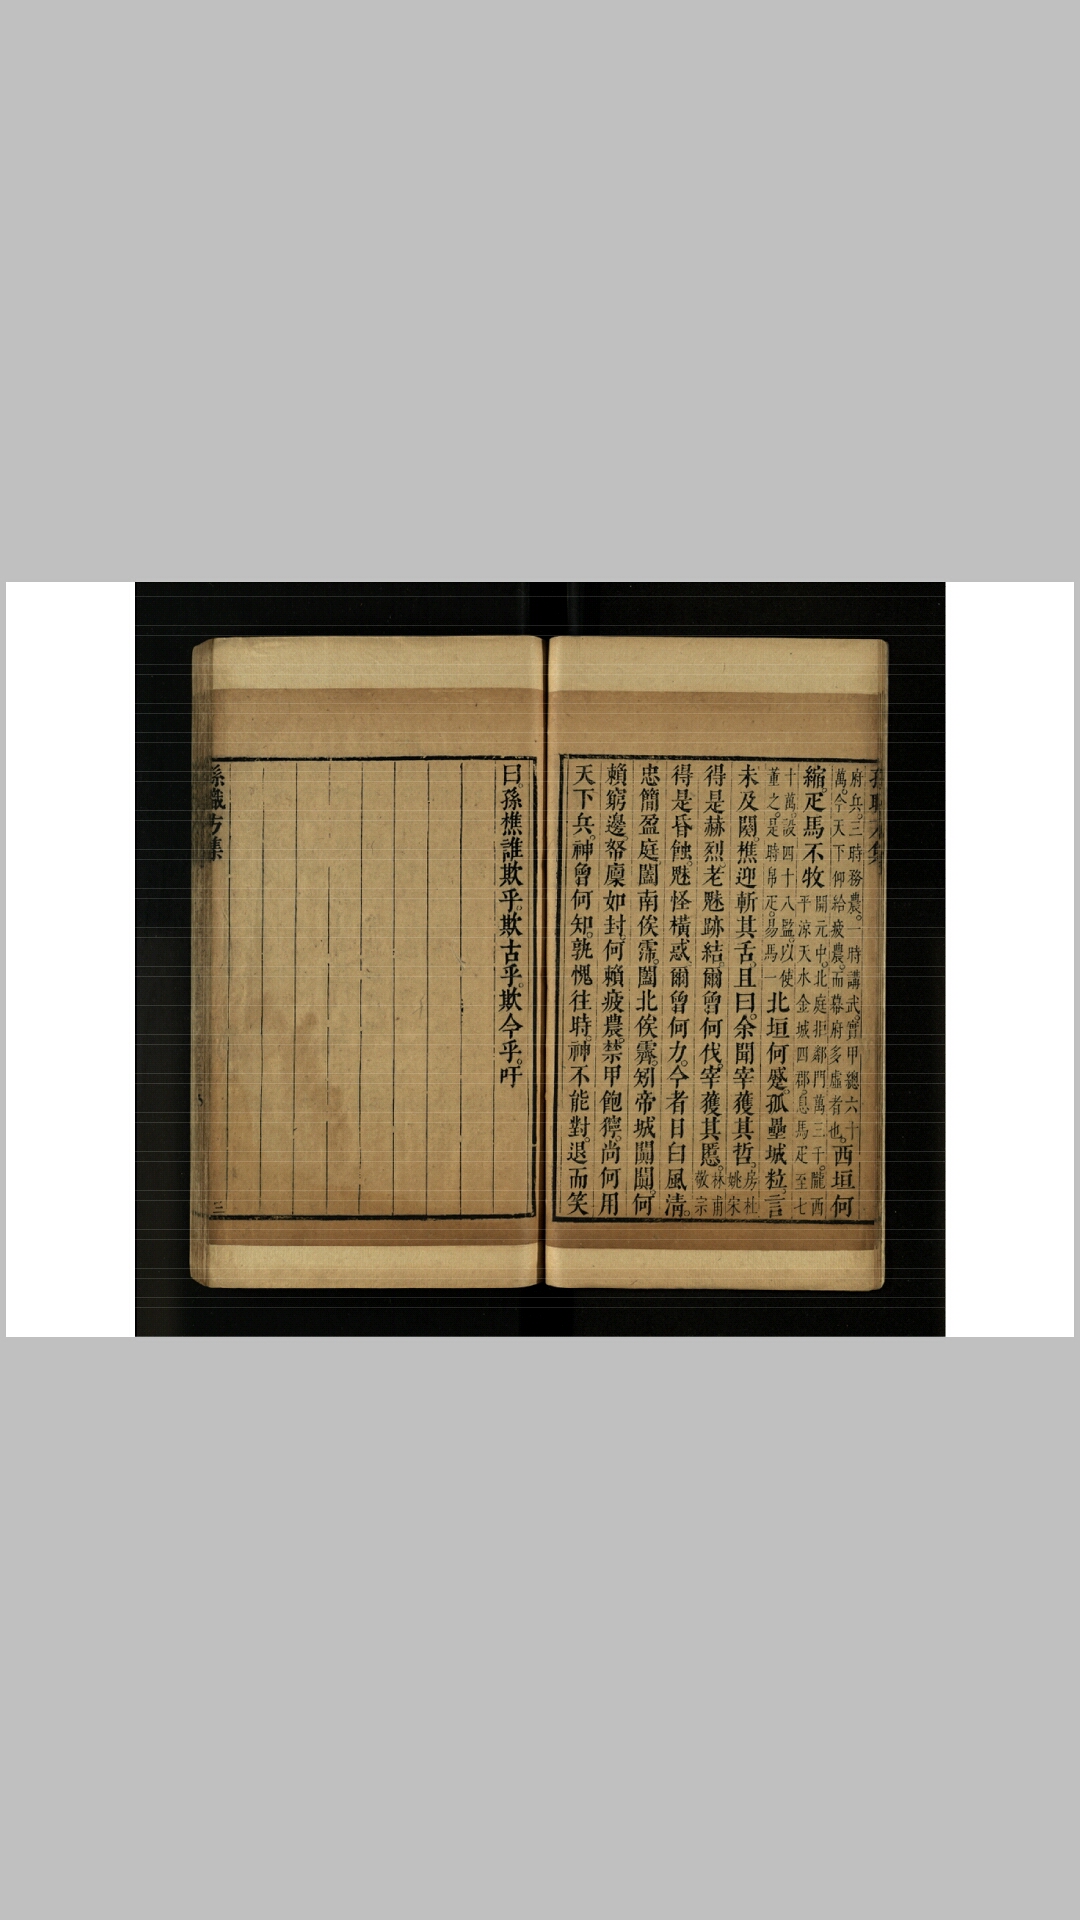 府兵三時務農。一時講武。管甲總六十
萬。今天下仰給疲農。而幕府多虛者也。西垣何
縮。疋馬不牧開元中。北庭拒鄰門萬三千。隴西
平涼天水金城四郡。息馬疋至七
十萬。設四十八監。以使
董之。是時帛疋。易馬一北垣何蹙。孤壘城粒。言
未及闋。樵迎斬其舌。且曰。余聞宰獲其哲。房杜
姚宋
得是赫烈。老魅跡結。爾曾何伐。宰獲其慝。林甫
敬宗
得是昏蝕。魅怪橫惑。爾曾何力。今者日白風清。
忠簡盈庭。闔南俟霈。闔北俟霽。矧帝城闐闐。何
賴窮邊。帑廩如封。何賴疲農。禁甲飽獰。尚何用
天下兵。神曾何知。孰愧往時。神不能對。退而笑
曰。孫樵誰欺乎。欺古乎。欺今乎。吁
孫職方集
三